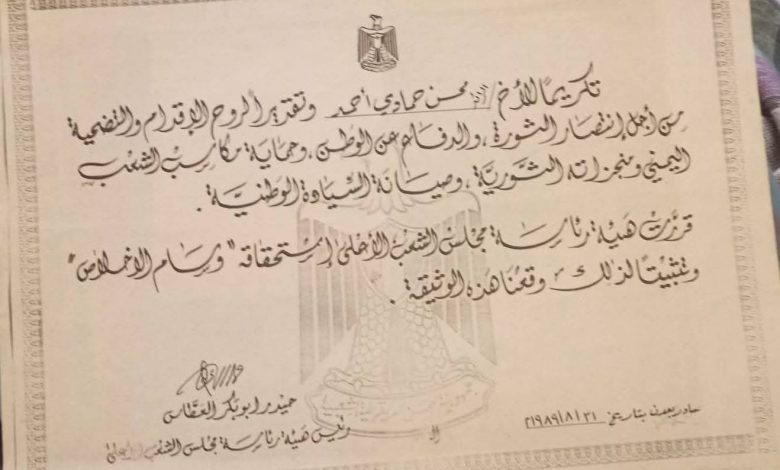 تكريمًا للأخ/ محسن حمادي أحمد وتقديرًا لروح الإقدام والتضحية
من أجل إنتصار الثورة، والدفاع عن الوطن، وحماية مكاسب الشعب
اليمني ومنجزاته الثورية، وصيانة السيادة الوطنية.
قررت هيئة رئاسة مجلس الشعب الأعلى إستحقاقه "وسام الاخلاص"
وتثبيتًا لذلك وقعنا هذه الوثيقة.
حيدر ابوبكر العطاس
رئيس هيئة رئاسة مجلس الشعب الأعلى
صادر بعدن بتاريخ ٣١/٨/١٩٨٩م